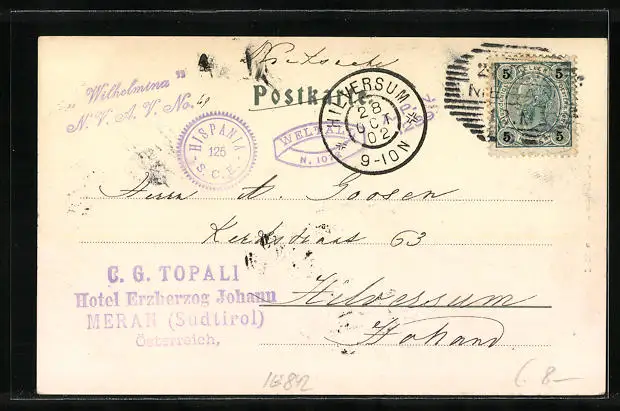 Drucksache
"Wilhelmina"
N. V. A. V. No. 49
Postkarte
HISPANIA
125
S. C. E.
WELTALL
N. 107
HILVERSUM
28
OCT
02
9-10N
5 5
5 5
Herrn A. Goosen
Kerkstraat 63
Hilversum
Holland
C. G. TOPALI
Hotel Erzherzog Johann
MERAN (Südtirol)
Österreich,
1682
8-